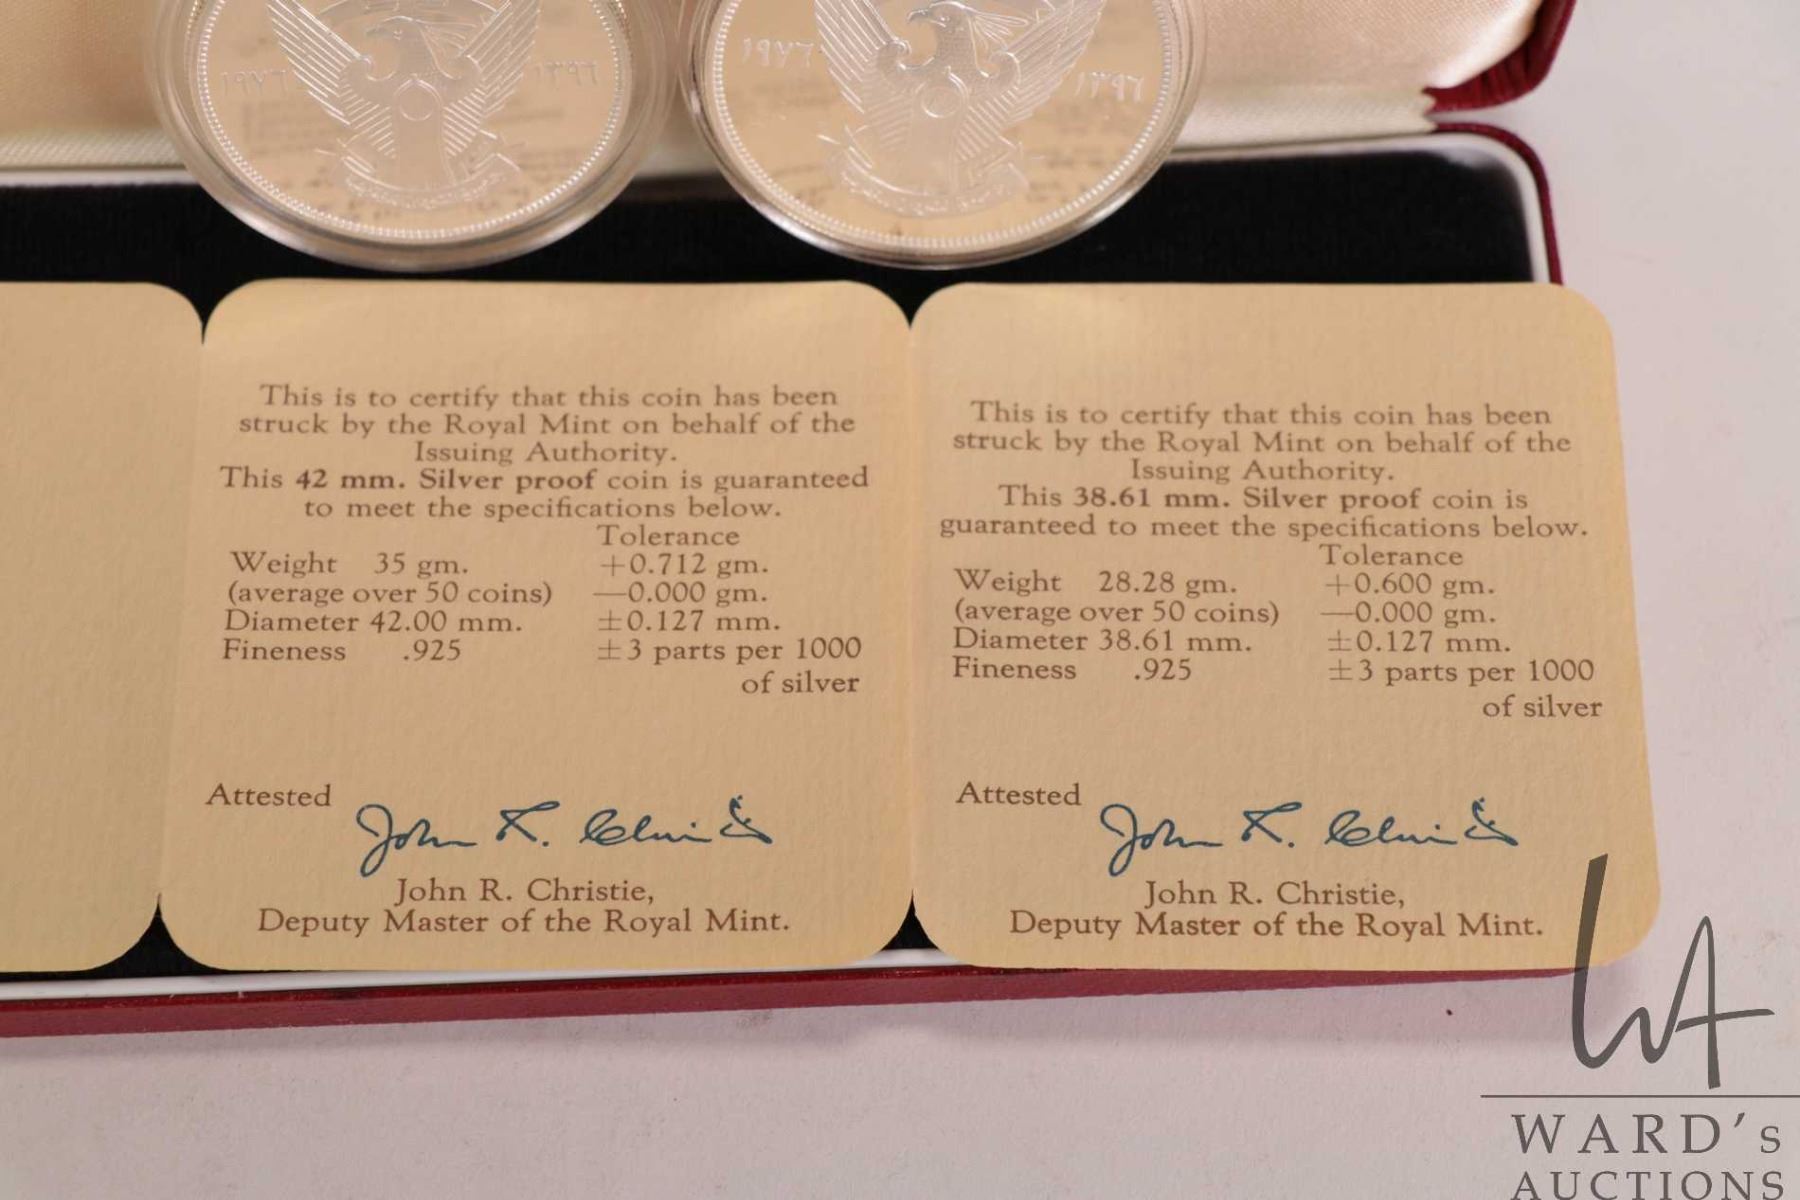 ١٩٧٦ ١٣٩٦
١٩٧٦ ١٣٩٦
This is to certify that this coin has been
struck by the Royal Mint on behalf of the
Issuing Authority.
This 42 mm. Silver proof coin is guaranteed
to meet the specifications below.
Tolerance
Weight 35 gm. +0.712 gm.
(average over 50 coins) —0.000 gm.
Diameter 42.00 mm. ±0.127 mm.
Fineness .925 ±3 parts per 1000
of silver
Attested
John R. Christie
John R. Christie,
Deputy Master of the Royal Mint.
This is to certify that this coin has been
struck by the Royal Mint on behalf of the
Issuing Authority.
This 38.61 mm. Silver proof coin is
guaranteed to meet the specifications below.
Tolerance
Weight 28.28 gm. +0.600 gm.
(average over 50 coins) —0.000 gm.
Diameter 38.61 mm. ±0.127 mm.
Fineness .925 ±3 parts per 1000
of silver
Attested
John R. Christie
John R. Christie,
Deputy Master of the Royal Mint.
WA
WARD's
AUCTIONS